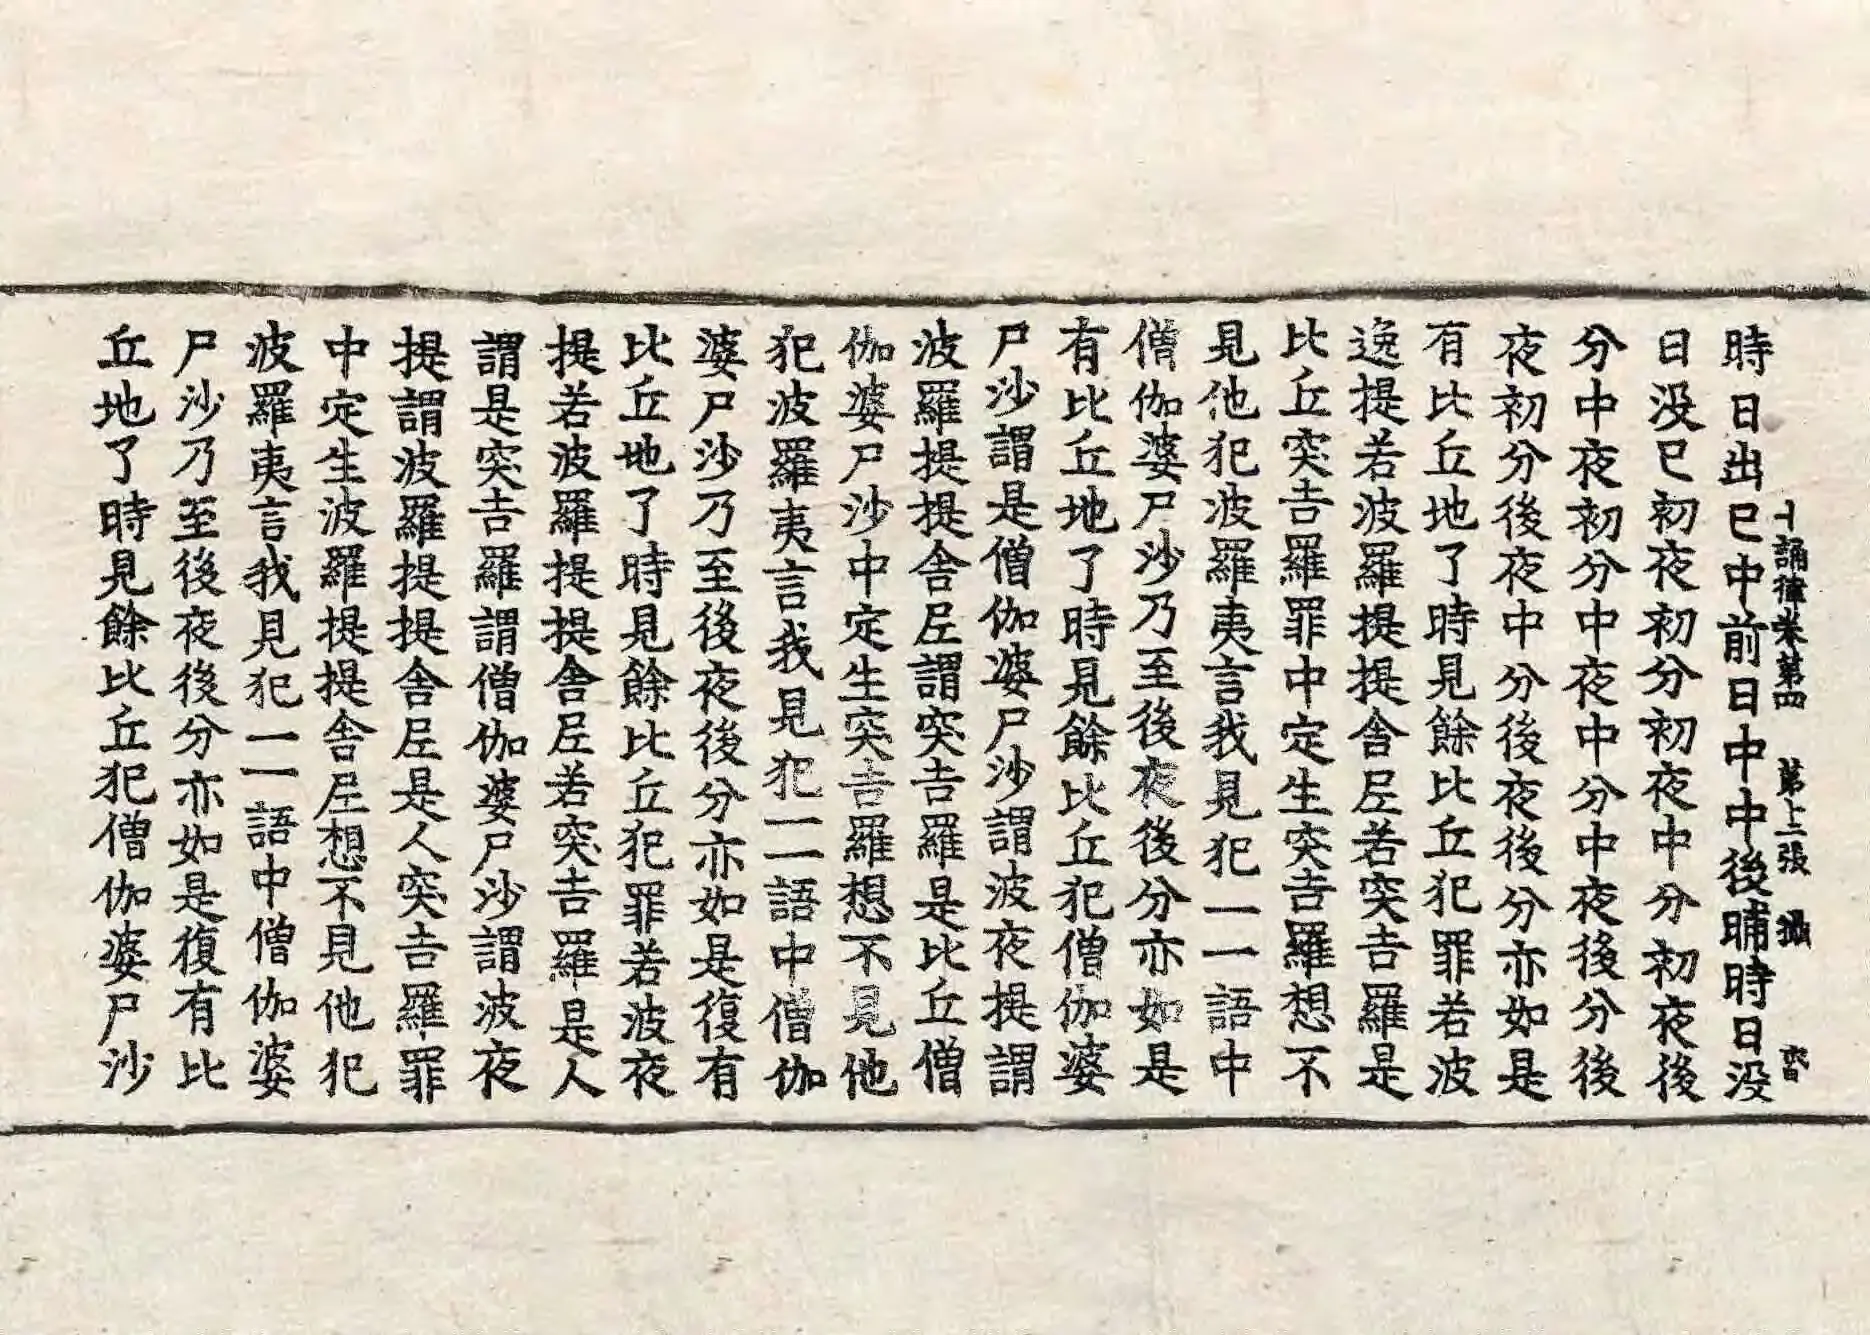 十誦律卷第四　第十二張　攝
時日出已中前日中中後晡時日没
日没已初夜初分初夜中分初夜後
分中夜初分中夜中分中夜後分後
夜初分後夜中分後夜後分亦如是
有比丘地了時見餘比丘犯罪若波
逸提若波羅提提舍尼若突吉羅是
比丘突吉羅罪中定生突吉羅想不
見他犯波羅夷言我見犯一一語中
僧伽婆尸沙乃至後夜後分亦如是
有比丘地了時見餘比丘犯僧伽婆
尸沙謂是僧伽婆尸沙謂波夜提謂
波羅提提舍尼謂突吉羅是比丘僧
伽婆尸沙中定生突吉羅想不見他
犯波羅夷言我見犯一一語中僧伽
婆尸沙乃至後夜後分亦如是復有
比丘地了時見餘比丘犯罪若波夜
提若波羅提提舍尼若突吉羅是人
謂是突吉羅謂僧伽婆尸沙謂波夜
提謂波羅提提舍尼是人突吉羅罪
中定生波羅提提舍尼想不見他犯
波羅夷言我見犯一一語中僧伽婆
尸沙乃至後夜後分亦如是復有比
丘地了時見餘比丘犯僧伽婆尸沙